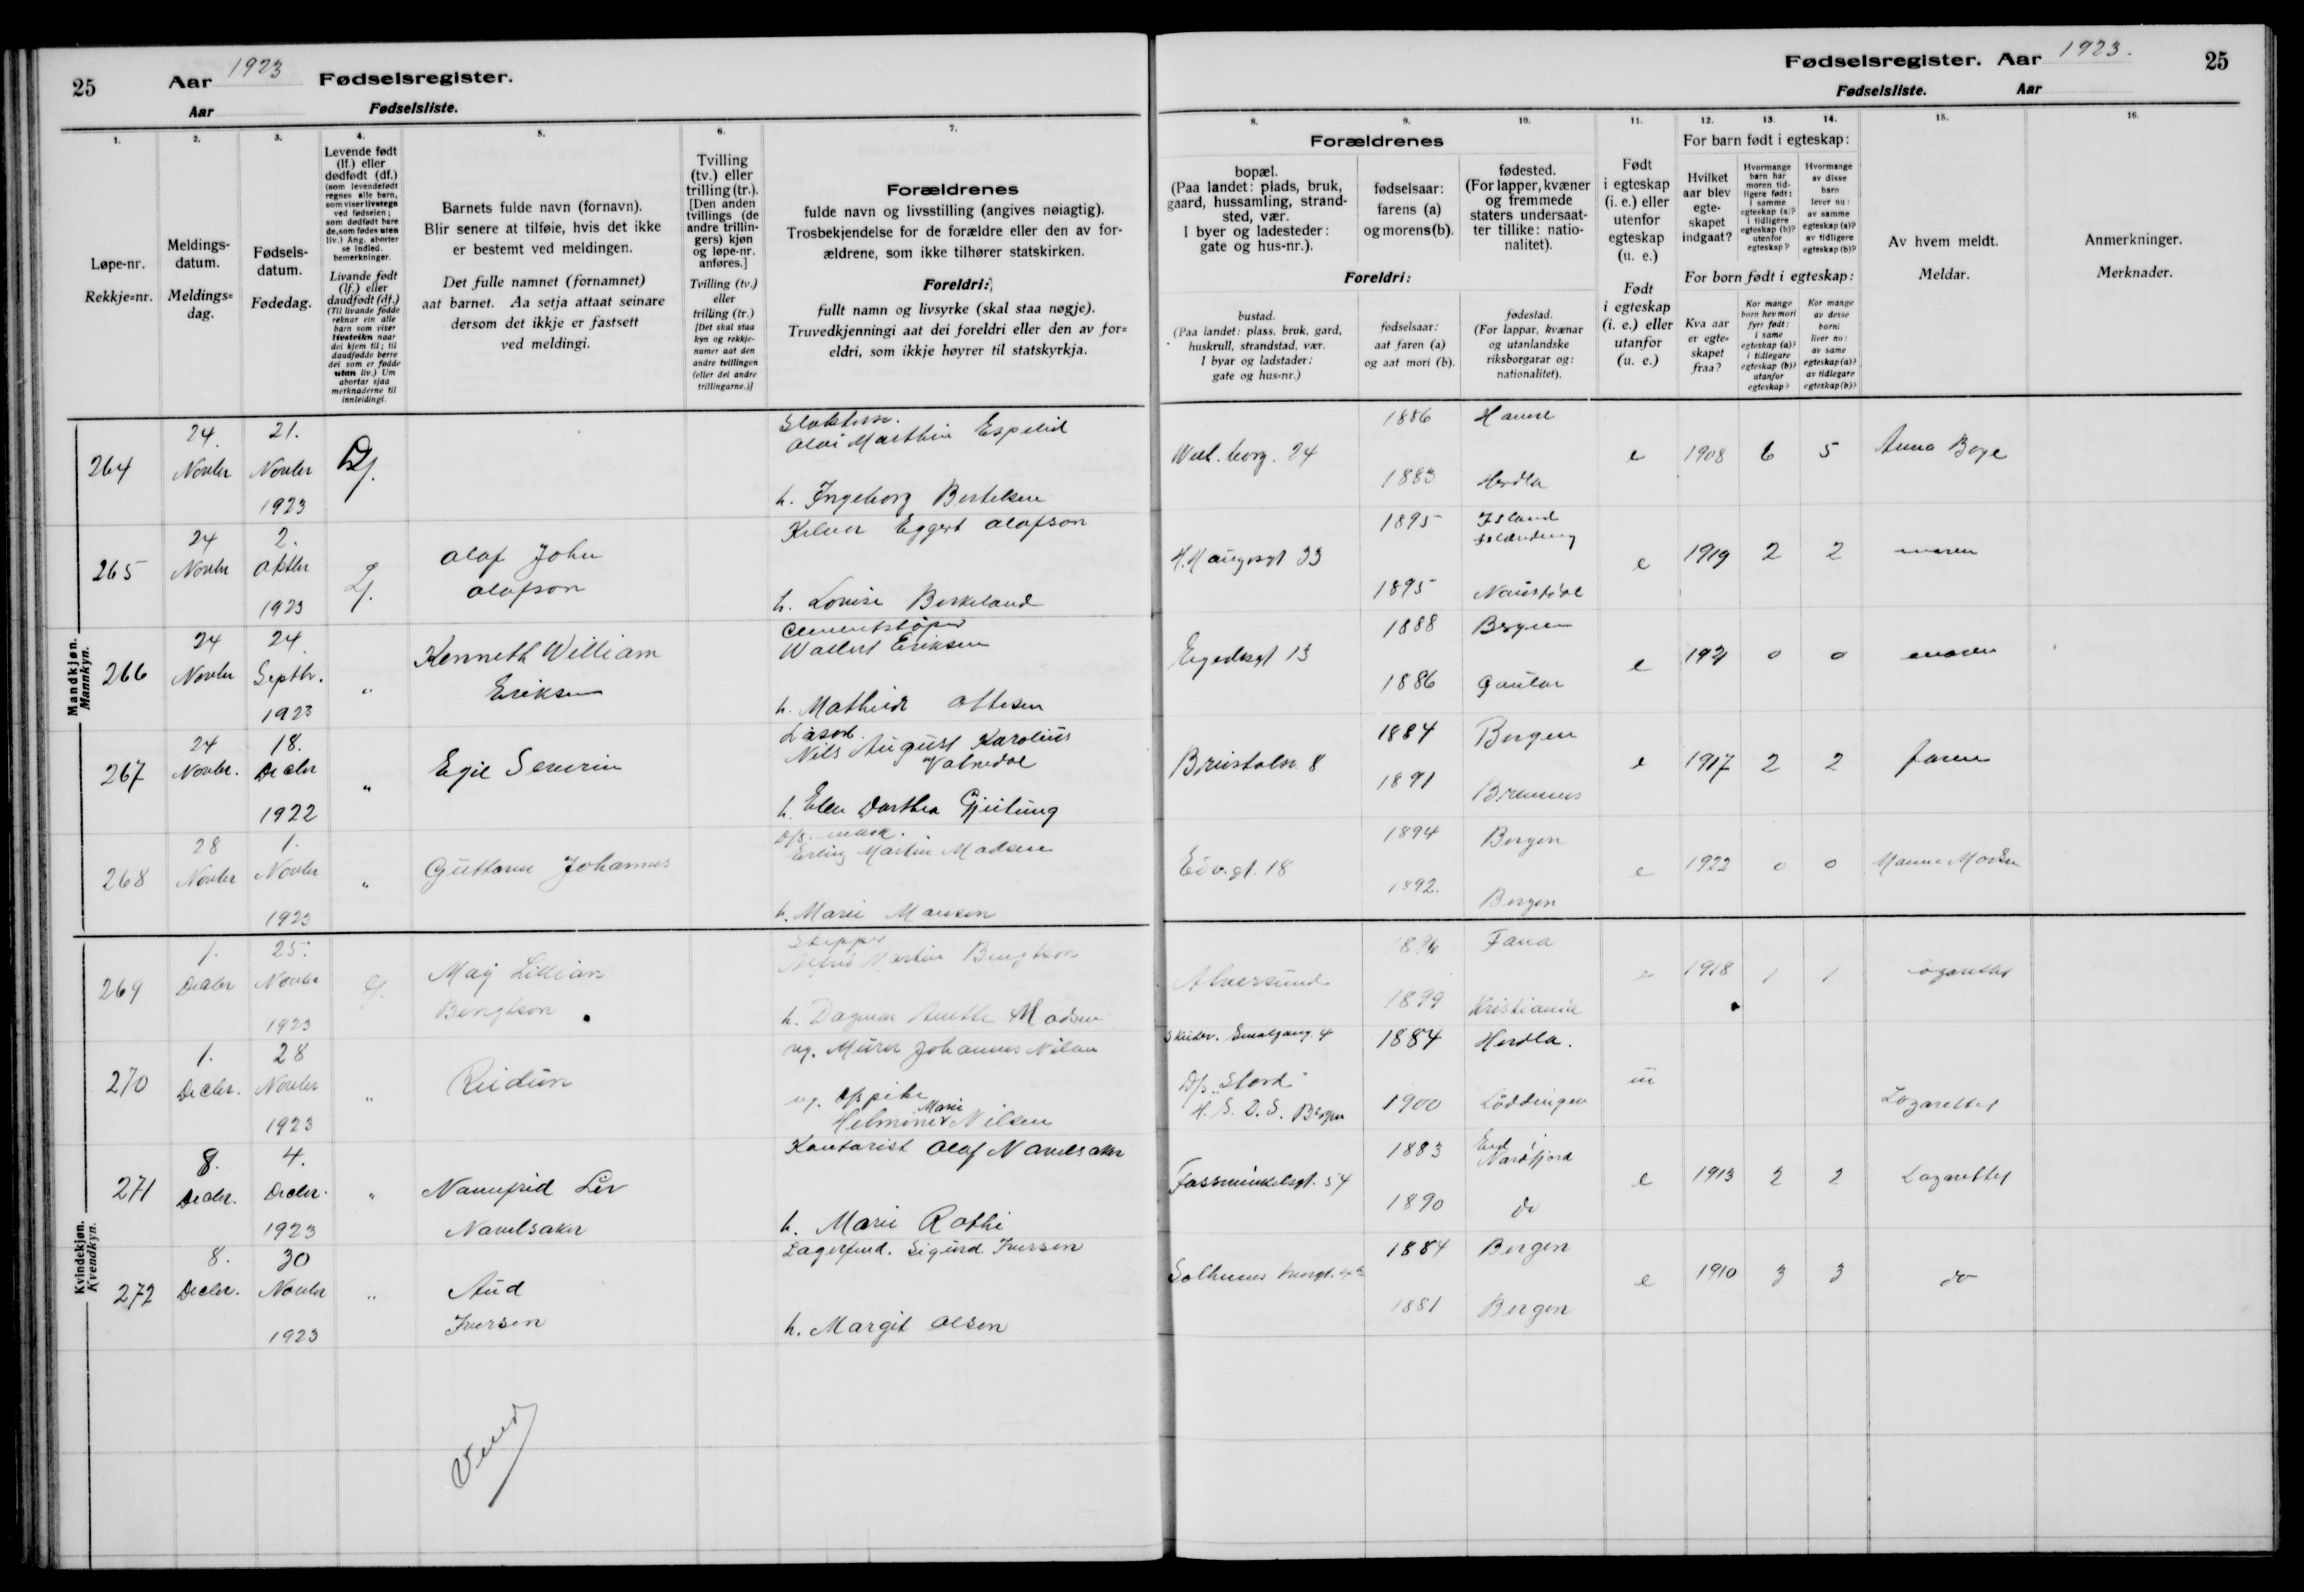 25
Aar 1923 Fødselsregister.
Aar Fødselsliste.
1.
Løpe-nr.
Rekkje=nr.
2.
Meldings-
datum.
Meldings=
dag.
3.
Fødsels-
datum.
Fødedag.
4.
Levende født
(lf.) eller
dødfødt (df.)
(som levendefødt
regnes alle barn,
som viser livstegn
ved fødselen;
som dødfødt bare
de, som fødes uten
liv.) Ang. aborter
se indled.
bemerkninger.
Livande født
(lf.) eller
daudfødt (df.)
(Til livande fødde
reknar ein alle
barn som viser
livsteikn naar
dei kjem til; til
daudfødde berre
dei som er fødde
utan liv.) Um
abortar sjaa
merknaderne til
innleidingi.
5.
Barnets fulde navn (fornavn).
Blir senere at tilføie, hvis det ikke
er bestemt ved meldingen.
Det fulle namnet (fornamnet)
aat barnet. Aa setja attaat seinare
dersom det ikkje er fastsett
ved meldingi.
6.
Tvilling
(tv.) eller
trilling (tr.).
[Den anden
tvillings (de
andre trillin-
gers) kjøn
og løpe-nr.
anføres.]
Tvilling (tv.)
eller
trilling (tr.)
[Det skal staa
kyn og rekkje-
numer aat den
andre tvillingen
(eller dei andre
trillingarne.)]
7.
Forældrenes
fulde navn og livsstilling (angives nøiagtig).
Trosbekjendelse for de forældre eller den av for-
ældrene, som ikke tilhører statskirken.
Foreldri:
fullt namn og livsyrke (skal staa nøgje).
Truvedkjenningi aat dei foreldri eller den av for=
eldri, som ikkje høyrer til statskyrkja.
Fødselsregister. Aar 1923.
25
Fødselsliste. Aar
8. 9. 10.
Forældrenes
bopæl.
(Paa landet: plads, bruk,
gaard, hussamling, strand-
sted, vær.
I byer og ladesteder:
gate og hus-nr.).
fødselsaar:
farens (a)
og morens (b).
fødested.
(For lapper, kvæner
og fremmede
staters undersaat-
ter tillike: natio-
nalitet).
Foreldri:
bustad.
(Paa landet: plass, bruk, gard,
huskrull, strandstad, vær.
I byar og ladstader:
gate og hus-nr.)
fødselsaar:
aat faren (a)
og aat mori (b).
fødestad.
(For lappar, kvænar
og utanlandske
riksborgarar og:
nationalitet).
11.
Født
i egteskap
(i. e.) eller
utenfor
egteskap
(u. e.)
Født
i egteskap
(i. e.) eller
utanfor
egteskap
(u. e.)
12. 13. 14.
For barn født i egteskap:
Hvilket
aar blev
egte-
skapet
indgaat?
Hvormange
barn har
moren tid-
ligere født:
i samme
egteskap (a)?
i tidligere
egteskap (b)?
utenfor
egteskap?
Hvormange
av disse
barn
lever nu:
av samme
egteskap (a)?
av tidligere
egteskap (b)?
For born født i egteskap:
Kva aar
er egte=
skapet
fraa?
Kor mange
born hev mori
fyrr født:
i same
egteskap (a)?
i tidlegare
egteskap (b)?
utanfor
egteskap?
Kor mange
av desse
borni
liver no:
av same
egteskap (a)?
av tidlegare
egteskap (b)?
15.
Av hvem meldt.
Meldar.
16.
Anmerkninger.
Merknader.
Mandkjøn.
Mannkyn.
264 24. Novbr 21. Novbr 1923 Df.
Marthin Espelid
h. Ingeborg Bertelsen
24 1886
1883 Herdla
e 1908 6 5 Anna Boge
265 24 Novbr 2. Oktbr 1923 Lf.
Olaf John
Olafson
Kelner Eggert Olafson
h. Lovise Birkeland
H. Haugesgt 33 1895 Island
1895 Naustdal
e 1919 2 2 moren
266 24 Novbr 24. Septbr. 1923 "
Kenneth William
Eriksen
Cementstøper
Eriksen
h. Mathilde Ottesen
Egedesgt 13 1888 Bergen
1886 Gaular
e 0 0 moren
267 24 Novbr. 18. Decbr 1922 "
Egil Severin
Nils August Karolius
h. Elen Dorthea Gjeitung
8 1884 Bergen
1891 Bremnes
e 1917 2 2 faren
268 28 Novbr 1. Novbr 1923 "
Guttorm Johannes
Erling Martin Madsen
h. Marie Mansen
18 1894 Bergen
1892. Bergen
e 1922 0 0
Kvindekjøn.
Kvendkyn.
269 1. Decbr 25. Novbr 1923
May Lillian
Bengtson
Martin Bengtson
h. Dagmar Madsen
Alversund Fana
1899 Kristiania
e 1918 1 1 Lazarettet
270 1. Decbr. 28 Novbr 1923 "
Reidun
ug. Murer Johannes Nilsen
ug. Marie
Nilsen
Smalgang 4 1884 Herdla.
D/s. "Stord"
H. S. D. S. Bergen 1900 Löddingen
Lazarettet
271 8. Decbr. 4. Decbr. 1923 "
Nannfrid Liv
Navelsaker
Kontorist Olaf Navelsaker
h. Marie Rothi
54 1883 Eid Nordfjord
1890 do
e 1913 2 2 Lazarettet
272 8. Decbr. 30 Novbr 1923 "
Aud
Iversen
Sigurd Iversen
h. Margit Olsen
1884 Bergen
1881 Bergen
e 1910 3 3 do
Vend